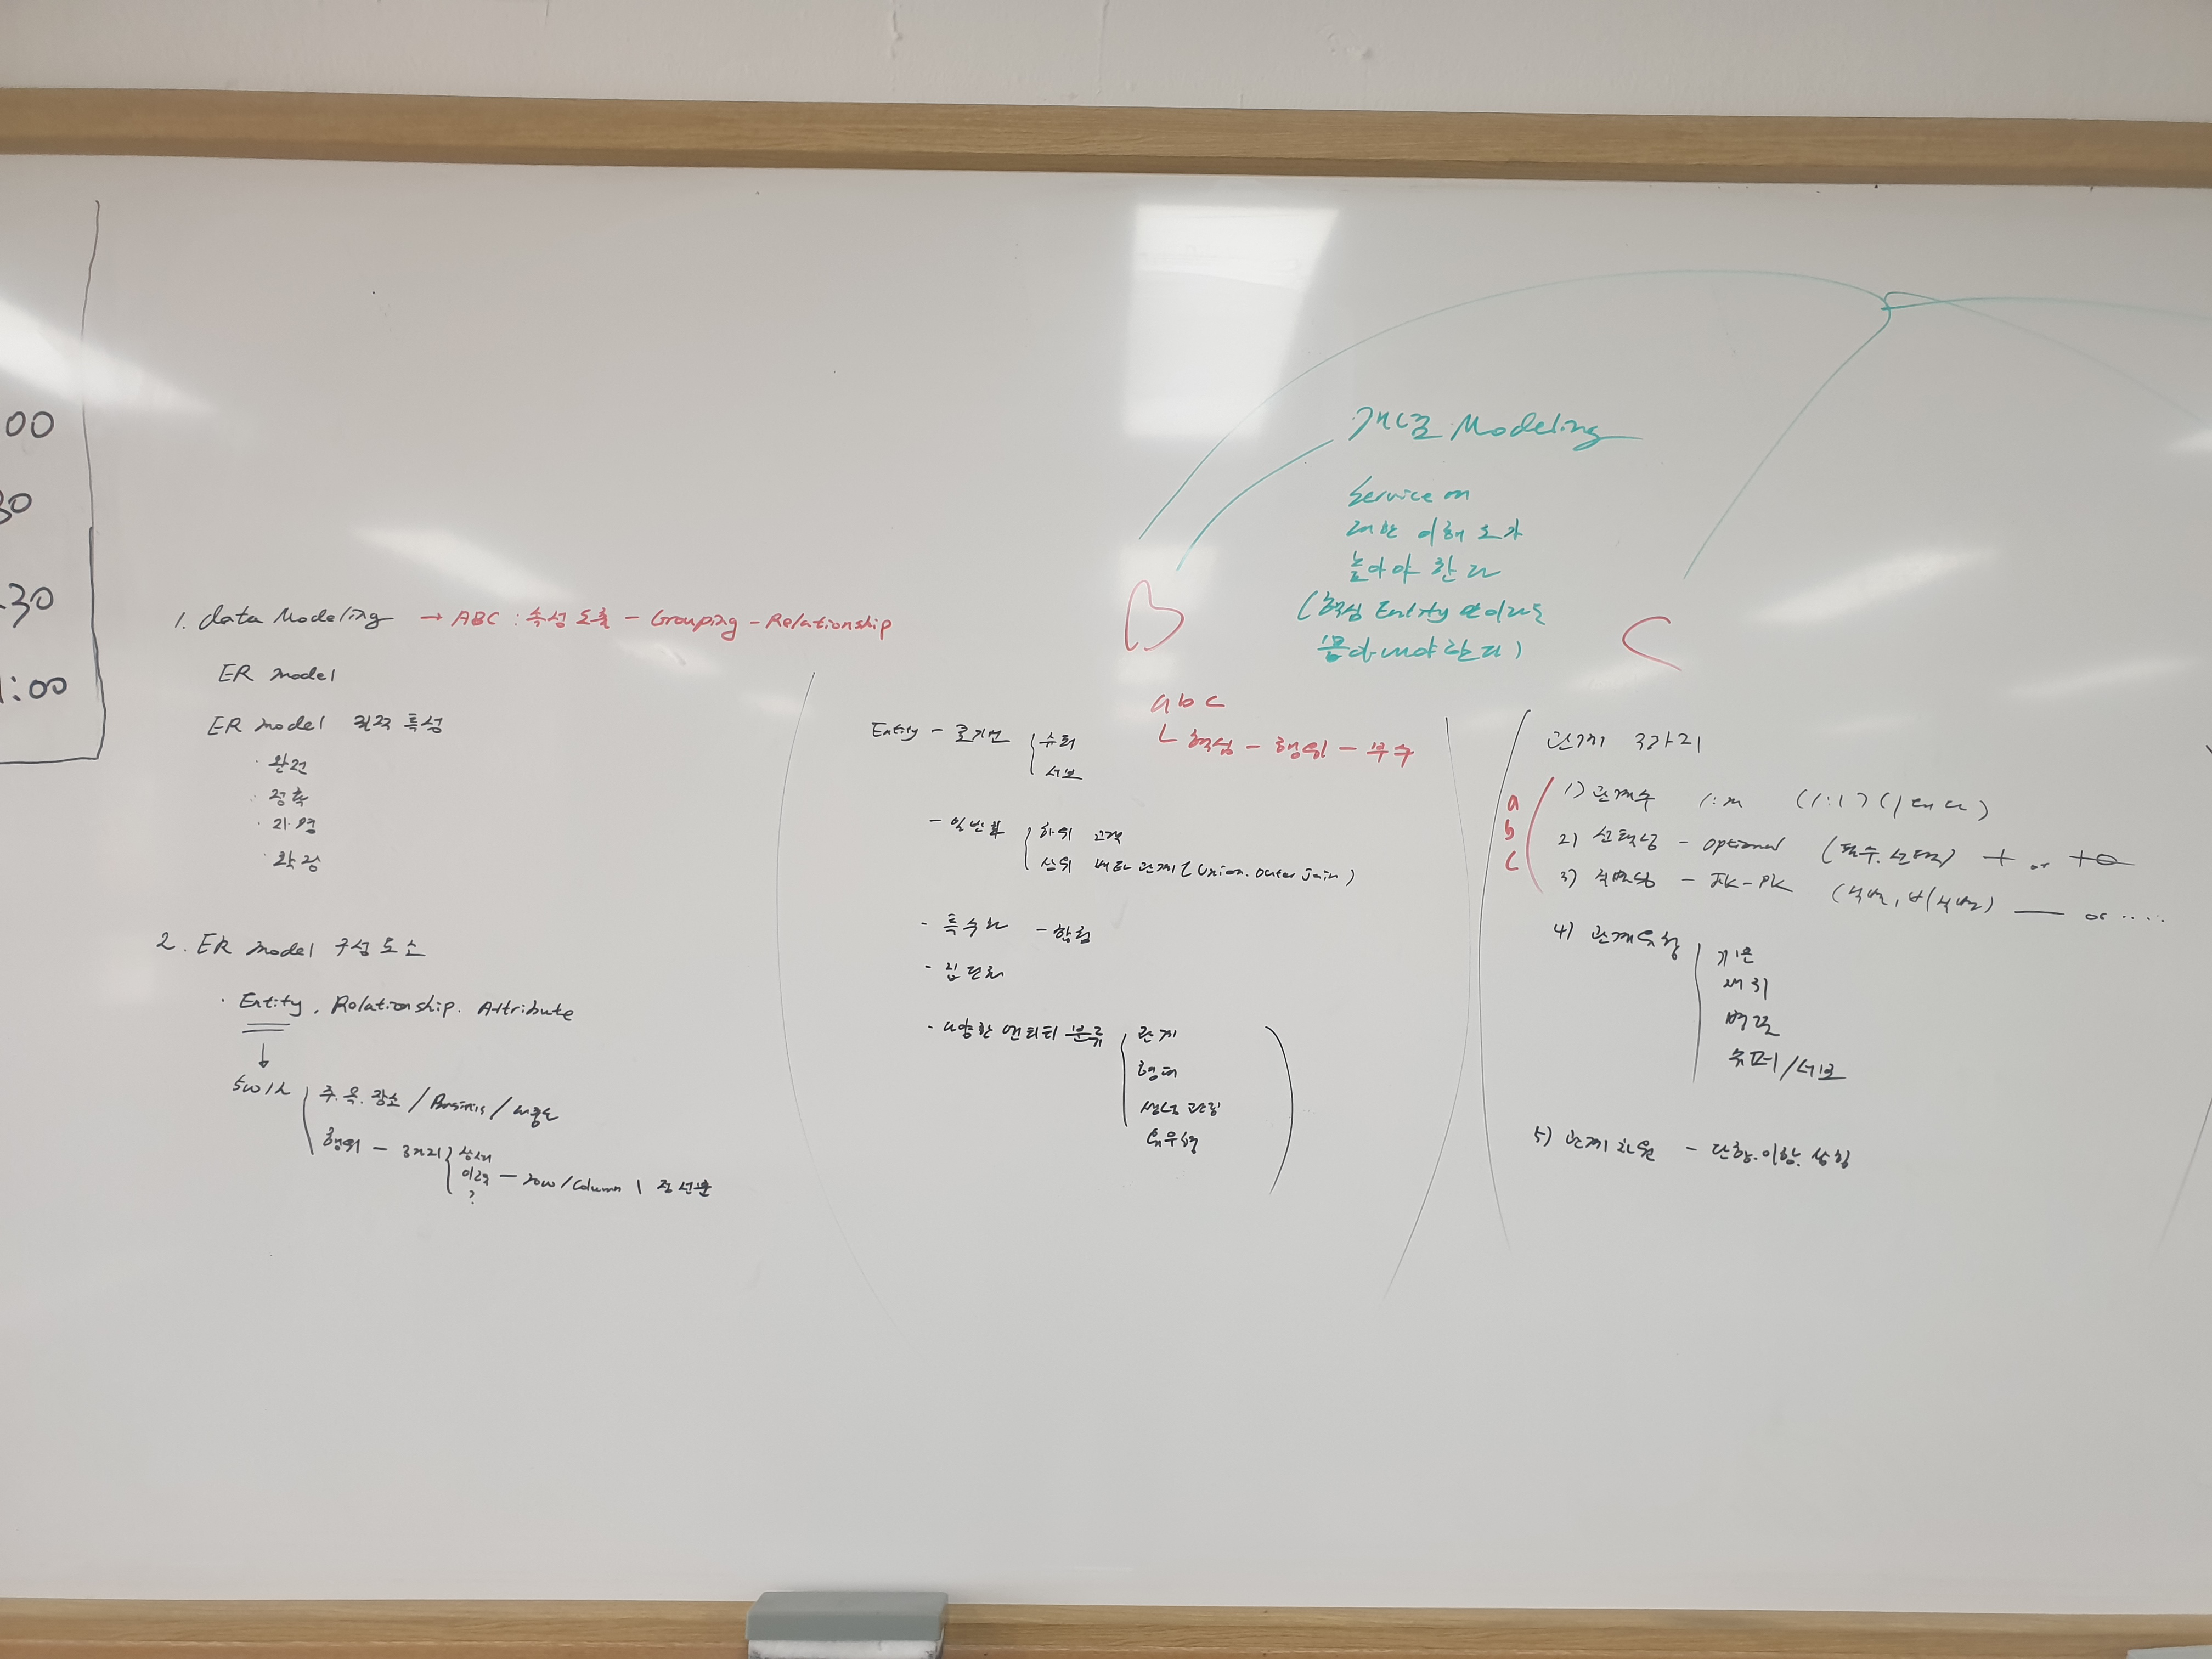 00
30
30
1:00
1. data Modeling → ABC : 속성 도출 - Grouping - Relationship
ER model
ER model 특성
· 완전
· 정확
· 확장
2. ER model 구성 요소
· Entity, Relationship. Attribute
5W1H
주. 목. 장소 / Business /
행위 - 3가지
상세
이력 - row/Column | 점 선분
?
개념 Modeling
Service에
대한 이해도가
높아야 한다
(핵심 Entity 만이라도
뽑아내야 한다)
B
C
abc
ㄴ 핵심 - 행위 - 부수
Entity -
슈퍼
서브
- 일반화
하위 고객
상위 배타 관계 (Union. Outer Join)
- 특수화
- 집단화
- 다양한 엔티티 분류
관계
형태
유무형
관계 3가지
a
b
c
1) 관계수 1:M (1:1) (1대다)
2) 선택성 - optional (필수. 선택) or
3) 식별성 - FK-PK (식별, 비식별) — or ....
4) 관계유형
기본
재귀
병렬
슈퍼/서브
5) 관계 차원 - 단항.이항.삼항